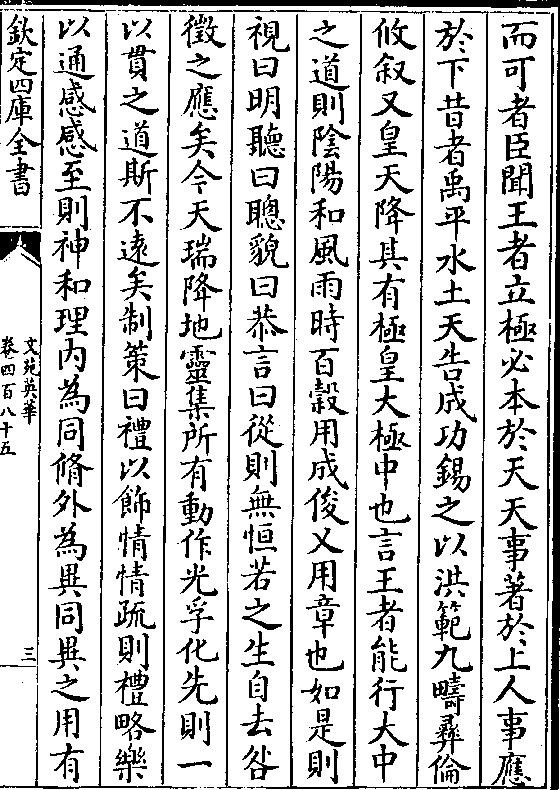 而可者臣聞王者立極必本於天天事著於上人事應
於下昔者禹平水土天告成功錫之以洪範九疇彝倫
攸叙又皇天降其有極皇大極中也言王者能行大中
之道則陰陽和風雨時百穀用成俊乂用章也如是則
視曰明聽曰聰貌曰恭言曰從則無恒若之生自去咎
徵之應矣今天瑞降地靈集所有動作光孚化先則一
以貫之道斯不遠矣制策曰禮以飾情情疏則禮略樂
以通感感至則神和理内為同脩外為異同異之用有
欽定四庫全書
文苑英華
卷四百八十五
三